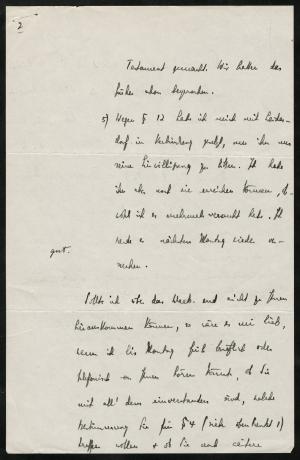 2
Testament gemacht. Wir hatten das
früher schon besprochen.
5) Wegen § 12 habe ich mich mit
in Verbindung gesetzt, um ihn um
seine Einwilligung zu bitten. Ich habe
ihn noch nie erreichen können,
ich es mehrmals versucht habe. Ich
werde es nächsten Montag wieder ver-
suchen.
gut.
Sollte ich das Week-end nicht zu Ihnen
hinauskommen können, so wäre es mir lieb,
wenn ich bis Montag früh brieflich oder
telefonisch von Ihnen hören könnte, ob Sie
mit all' dem einverstanden sind, welche
Bestimmung Sie für § 4 (siehe oben Punkt 1)
treffen wollen & ob Sie noch weitere